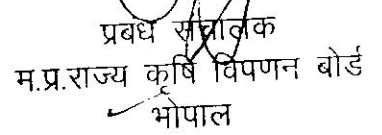 प्रबंध संचालक
म.प्र.राज्य कृषि विपणन बोर्ड
भोपाल